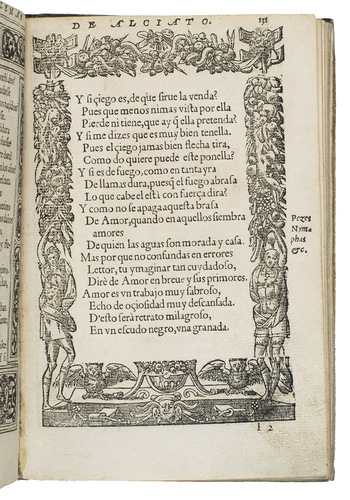 DE ALCIATO. 131
Y si çiego es, de que sirue la venda?
Pues que menos ni mas vista por ella
Pierde ni tiene, que ay q̃ ella pretenda?
Y si me dizes que es muy bien tenella.
Pues el çiego jamas bien flecha tira,
Como do quiere puede este ponella?
Y si es de fuego, como en tanta yra
De llamas dura, puesq̃ el fuego abrasa
Lo que cabe el està con fuerça dira?
Y como no se apaga aquesta brasa
De Amor, quando en aquellos siembra
amores
De quien las aguas son morada y casa.
Mas por que no confundas en errores
Lettor, tu ymaginar tan cuydadoso,
Dirè de Amor en breue y sus primores.
Amor es vn trabajo muy sabroso,
Echo de oçiosidad muy descansada.
D'esto serà retrato milagroso,
En vn escudo negro, vna granada.
Peçes
Nym
phas
&c.
I 2